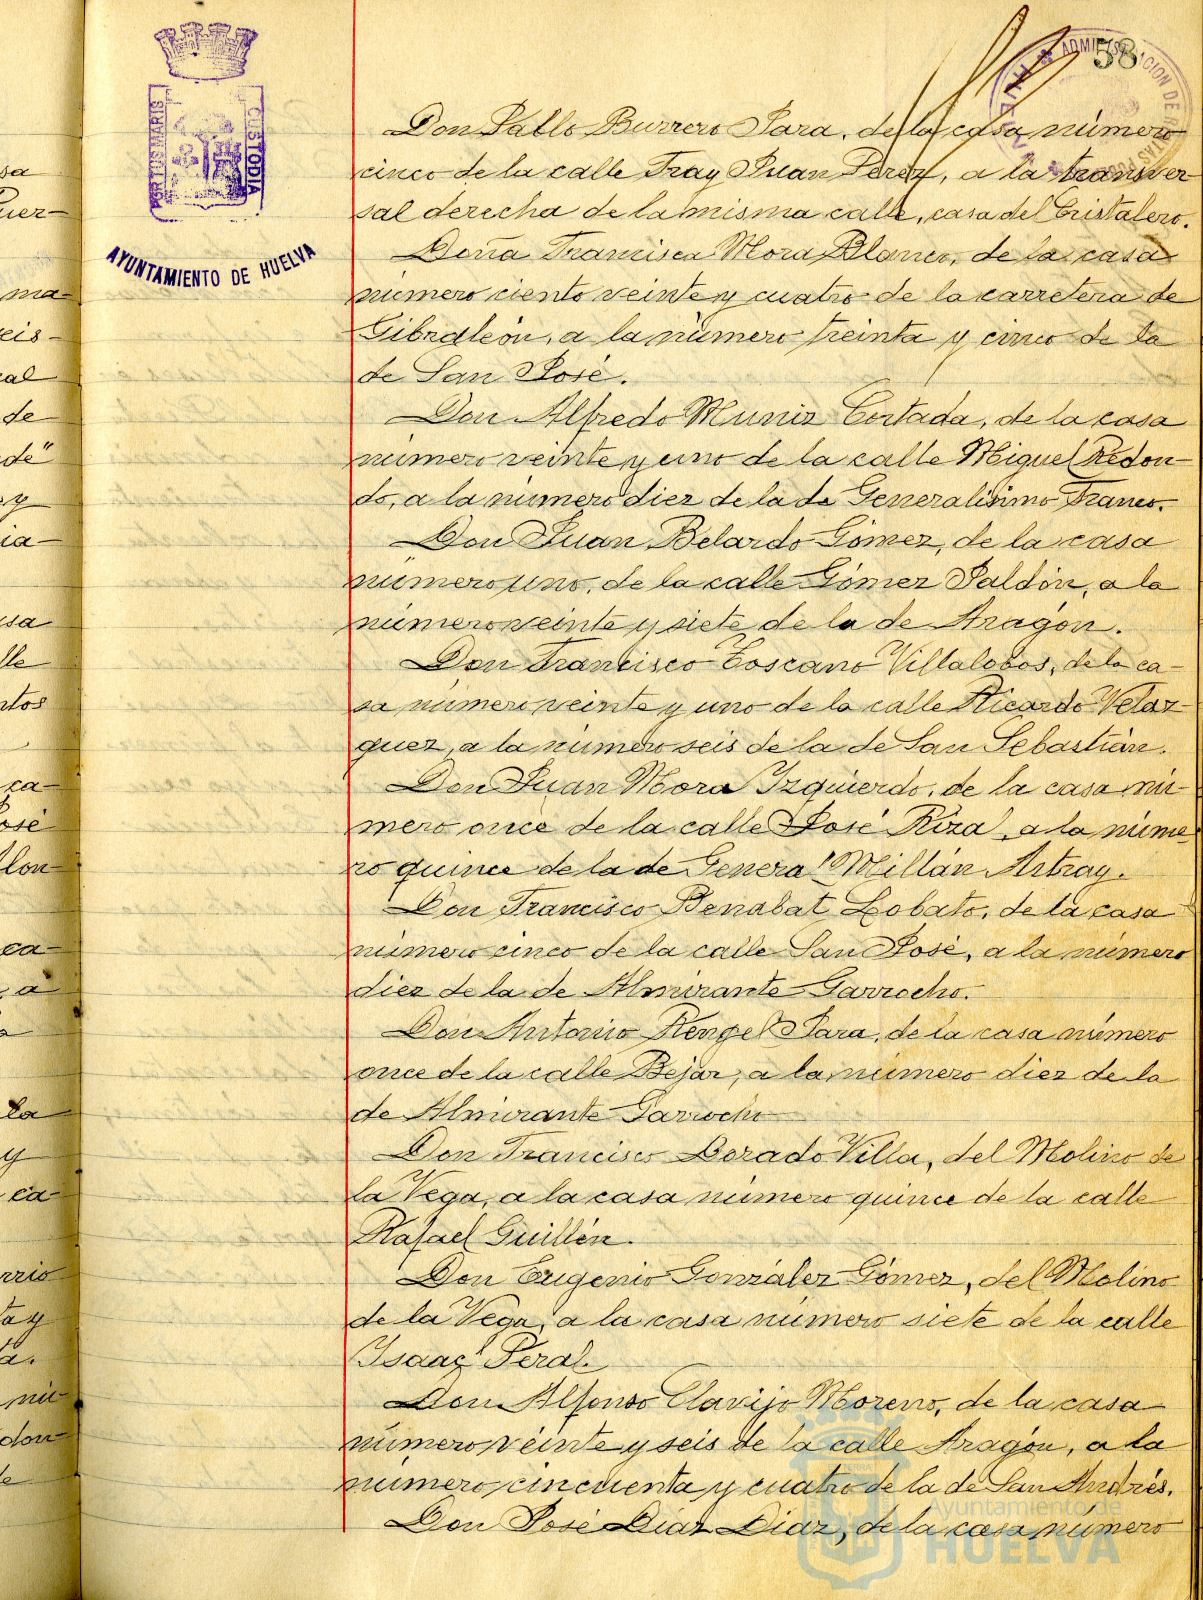 58
ADMINISTRACION DE RENTAS
HUELVA
PORTUS MARIS
CUSTODIA
AYUNTAMIENTO DE HUELVA
Don Pablo Burrero Para, de la casa número
cinco de la calle Fray Juan Pérez, a la transver-
sal derecha de la misma calle, casa del Cristalero.
Doña Francisca Mora Blanco, de la casa
número ciento veinte y cuatro de la carretera de
Gibraleón, a la número treinta y cinco de la
de San José.
Don Alfredo Muniz Cortada, de la casa
número veinte y uno de la calle Miguel Redon-
do, a la número diez de la de Generalísimo Franco.
Don Juan Belardo Gómez, de la casa
número uno, de la calle Gómez Jaldón, a la
número veinte y siete de la de Aragón.
Don Francisco Toscano Villalobos, de la ca-
sa número veinte y uno de la calle Ricardo Velaz-
quez, a la número seis de la de San Sebastián.
Don Juan Mora Izquierdo, de la casa nú-
mero once de la calle José Riza, a la núme-
ro quince de la de General Millán Astray.
Don Francisco Benabat Lobato, de la casa
número cinco de la calle San José, a la número
diez de la de Almirante Garrocho.
Don Antonio Rengel Para, de la casa número
once de la calle Bejar, a la número diez de la
de Almirante Garrocho
Don Francisco Dorado Villa, del Molino de
la Vega, a la casa número quince de la calle
Rafael Guillén.
Don Eugenio González Gómez, del Molino
de la Vega, a la casa número siete de la calle
Isaac Peral.
Don Alfonso Clavijo Moreno, de la casa
número veinte y seis de la calle Aragón, a la
número cincuenta y cuatro de la de San Andrés.
Don José Díaz Díaz, de la casa número
Ayuntamiento de
HUELVA